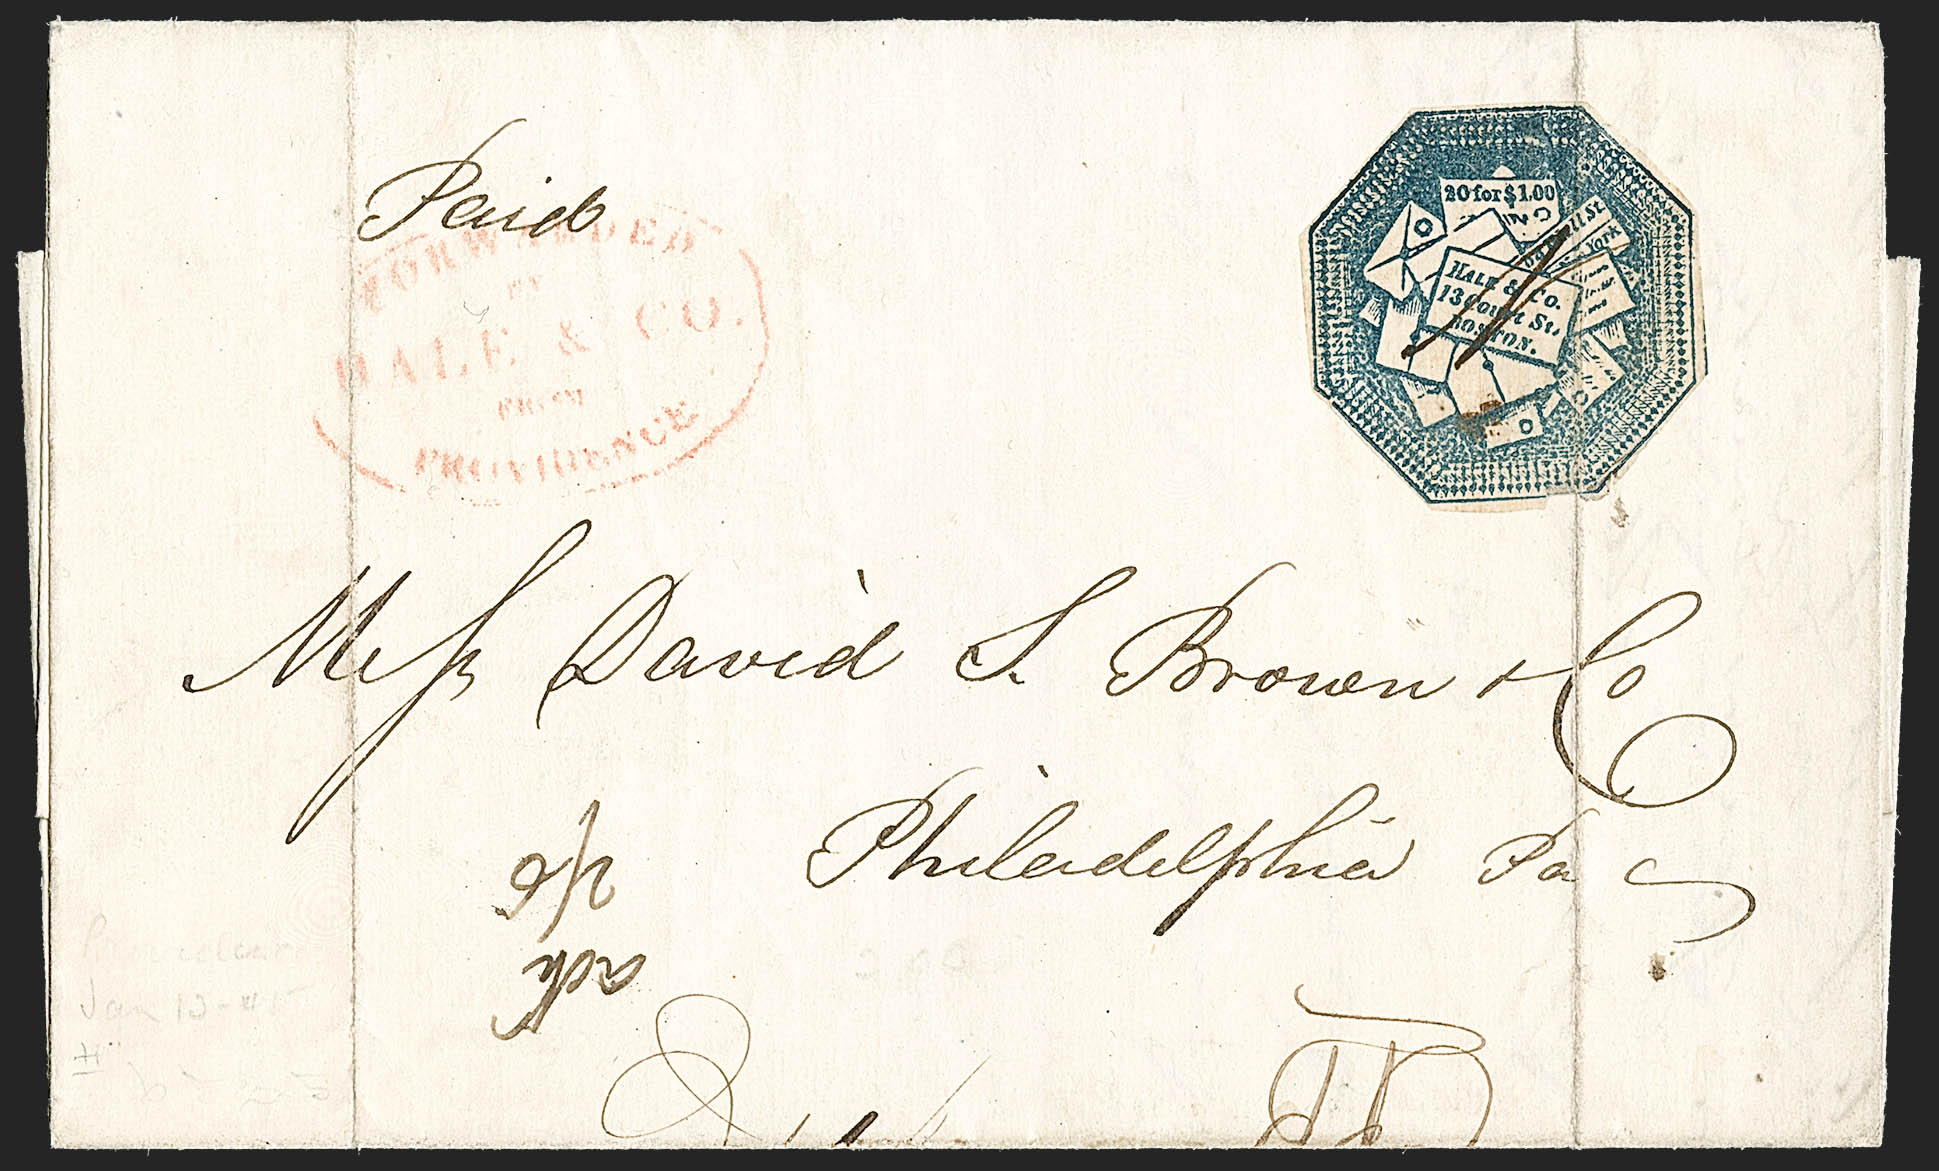 Paid
FORWARDED
BY
HALE & CO.
FROM
PROVIDENCE
20 for $1.00
ll St
York
HALE & CO.
13 Court St,
BOSTON.
Mess David S. Brown & Co
Philadelphia Pa
Jan 12-45